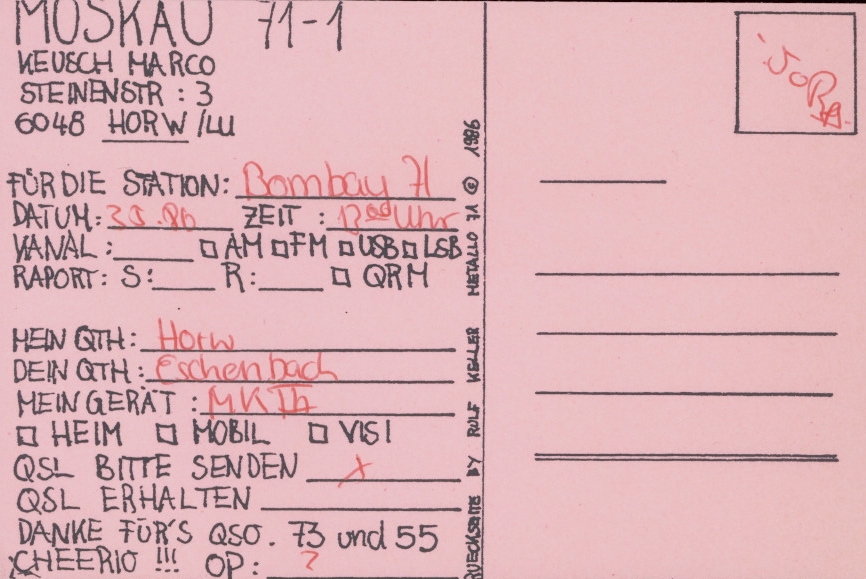 MOSKAU 71-1
KEUSCH MARCO
STEINENSTR : 3
6048 HORW / LU
FÜR DIE STATION: Bombay 71
DATUM: 86 ZEIT : 13 Uhr
KANAL : AM FM USB LSB
RAPORT: S: R: QRM
MEIN QTH: Horw
DEIN QTH: Eschenbach
MEIN GERÄT : MK
HEIM MOBIL VISI
QSL BITTE SENDEN X
QSL ERHALTEN
DANKE FÜR'S QSO. 73 und 55
CHEERIO !!! OP: ?
RUECKSEITE BY ROLF KELLER METALLO 71 © 1986